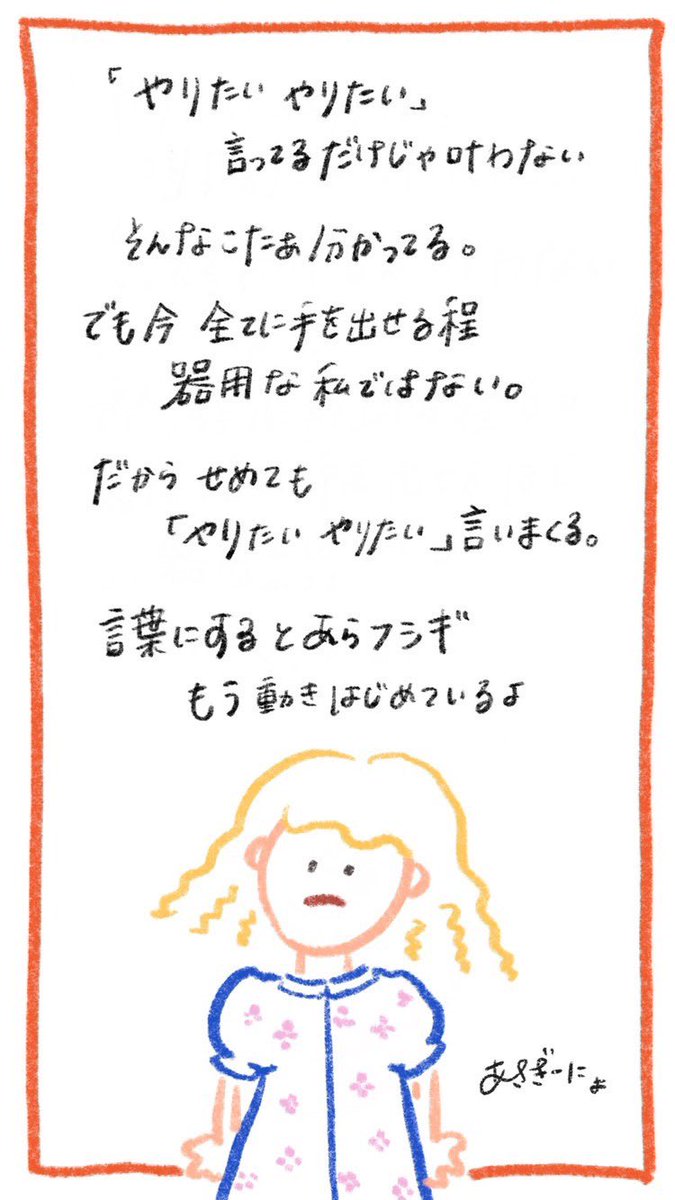 「やりたい やりたい」
言ってるだけじゃ叶わない
そんなこたぁ分かってる。
でも今 全てに手を出せる程
器用な私ではない。
だから せめても
「やりたい やりたい」言いまくる。
言葉にするとあらフシギ
もう動きはじめているよ
あさぎーにょ